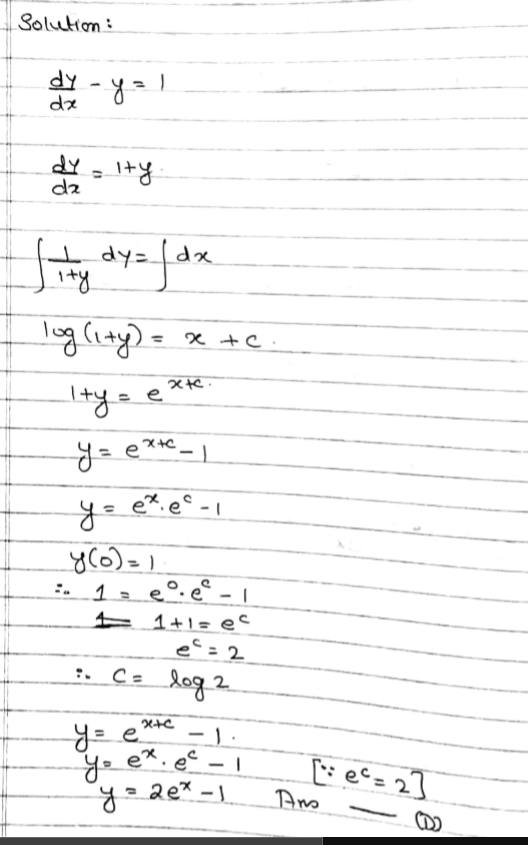 Solution:
dy/dx - y = 1
dy/dx = 1+y.
∫ 1/(1+y) dy = ∫ dx
log(1+y) = x + c.
1+y = e^(x+c).
y = e^(x+c) - 1
y = e^x. e^c - 1
y(0) = 1
∴ 1 = e^0. e^c - 1
1+1 = e^c
e^c = 2
∴ C = log 2
y = e^(x+c) - 1.
y = e^x. e^c - 1 [∵ e^c = 2]
y = 2e^x - 1 Ans — (D)